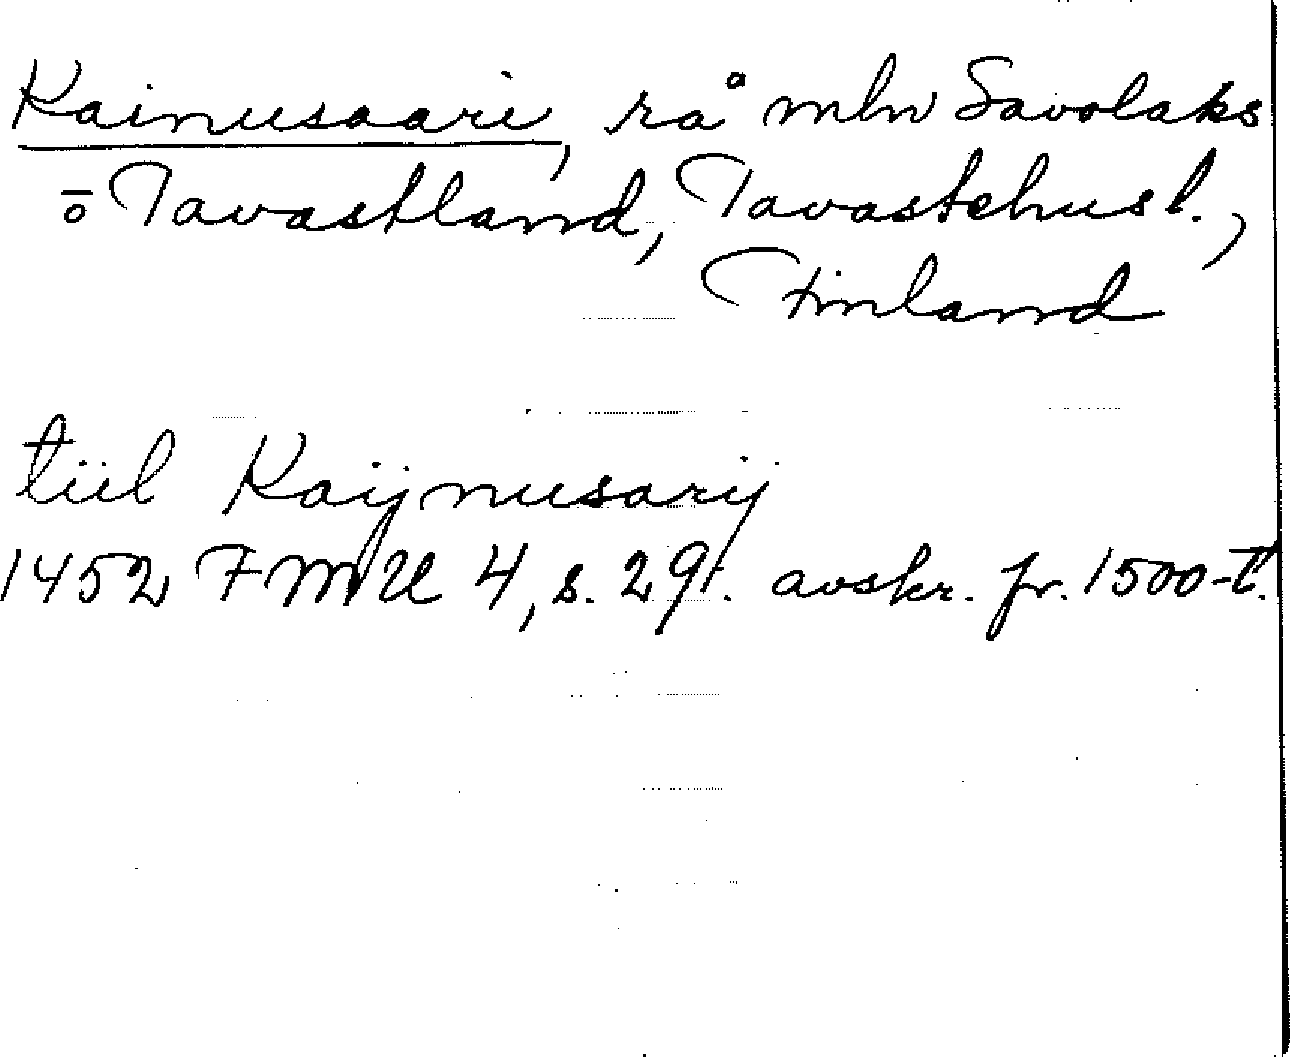 Kainusaari, rå mln Savolaks
o Tavastland, Tavastehus l.,
Finland
tiil Kaijnusarij
1452 FMU 4, s. 29f. avskr. fr. 1500-t.